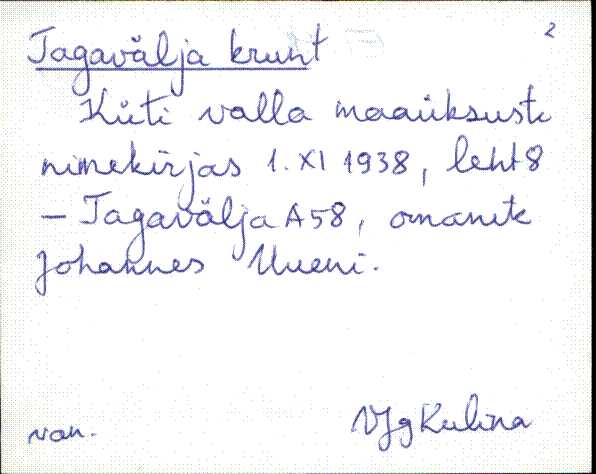 2
Tagavälja krunt
Küti valla maaüksuste
nimekirjas 1. XI 1938, leht 8
– Tagavälja A58, omanik
Johannes Uueni.
VJg Kulina